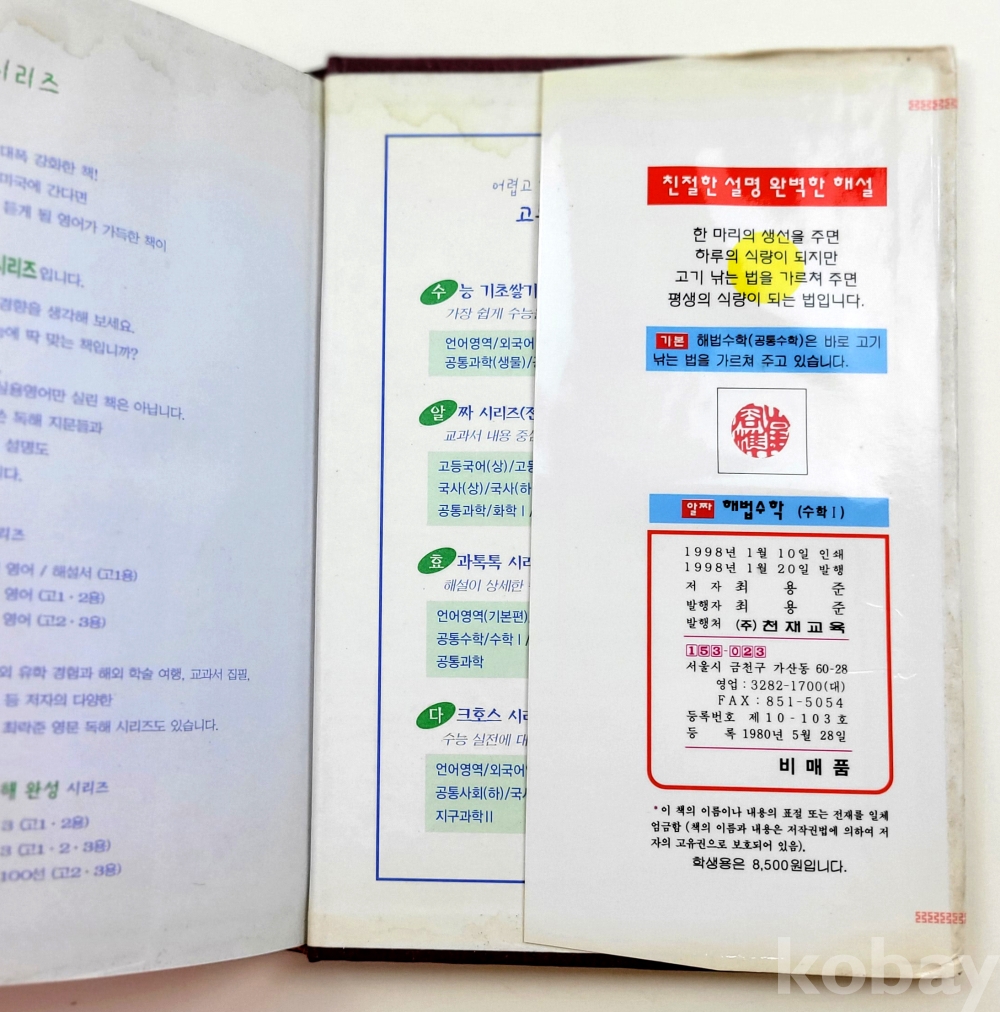 시리즈
대폭 강화한 책!
미국에 간다면
듣게 될 영어가 가득한 책이
시리즈입니다.
경향을 생각해 보세요.
에 딱 맞는 책입니까?
실용영어만 실린 책은 아닙니다.
독해 지문들과
설명도
니다.
리즈
영어 / 해설서 (고1용)
영어 (고1·2용)
영어 (고2·3용)
외 유학 경험과 해외 학술 여행, 교과서 집필,
등 저자의 다양한
최락준 영문 독해 시리즈도 있습니다.
해 완성 시리즈
3 (고1·2용)
3 (고1·2·3용)
100선 (고2·3용)
어렵고
고
수능 기초쌓기
가장 쉽게 수능
언어영역/외국어
공통과학(생물)/
알짜 시리즈(전
교과서 내용 중심
고등국어(상)/고등
국사(상)/국사(하
공통과학/화학Ⅰ/
효과톡톡 시리
해설이 상세한
언어영역(기본편)
공통수학/수학Ⅰ/
공통과학
다크호스 시리
수능 실전에 대
언어영역/외국어
공통사회(하)/국사
지구과학Ⅱ
친절한 설명 완벽한 해설
한 마리의 생선을 주면
하루의 식량이 되지만
고기 낚는 법을 가르쳐 주면
평생의 식량이 되는 법입니다.
기본 해법수학(공통수학)은 바로 고기
낚는 법을 가르쳐 주고 있습니다.
알짜 해법수학 (수학Ⅰ)
1998년 1월 10일 인쇄
1998년 1월 20일 발행
저 자 최 용 준
발행자 최 용 준
발행처 (주) 천재교육
153-023
서울시 금천구 가산동 60-28
영업 : 3282-1700(대)
FAX : 851-5054
등록번호 제10-103호
등 록 1980년 5월 28일
비매품
*이 책의 이름이나 내용의 표절 또는 전재를 일체
엄금함 (책의 이름과 내용은 저작권법에 의하여 저
자의 고유권으로 보호되어 있음).
학생용은 8,500원입니다.
kobay